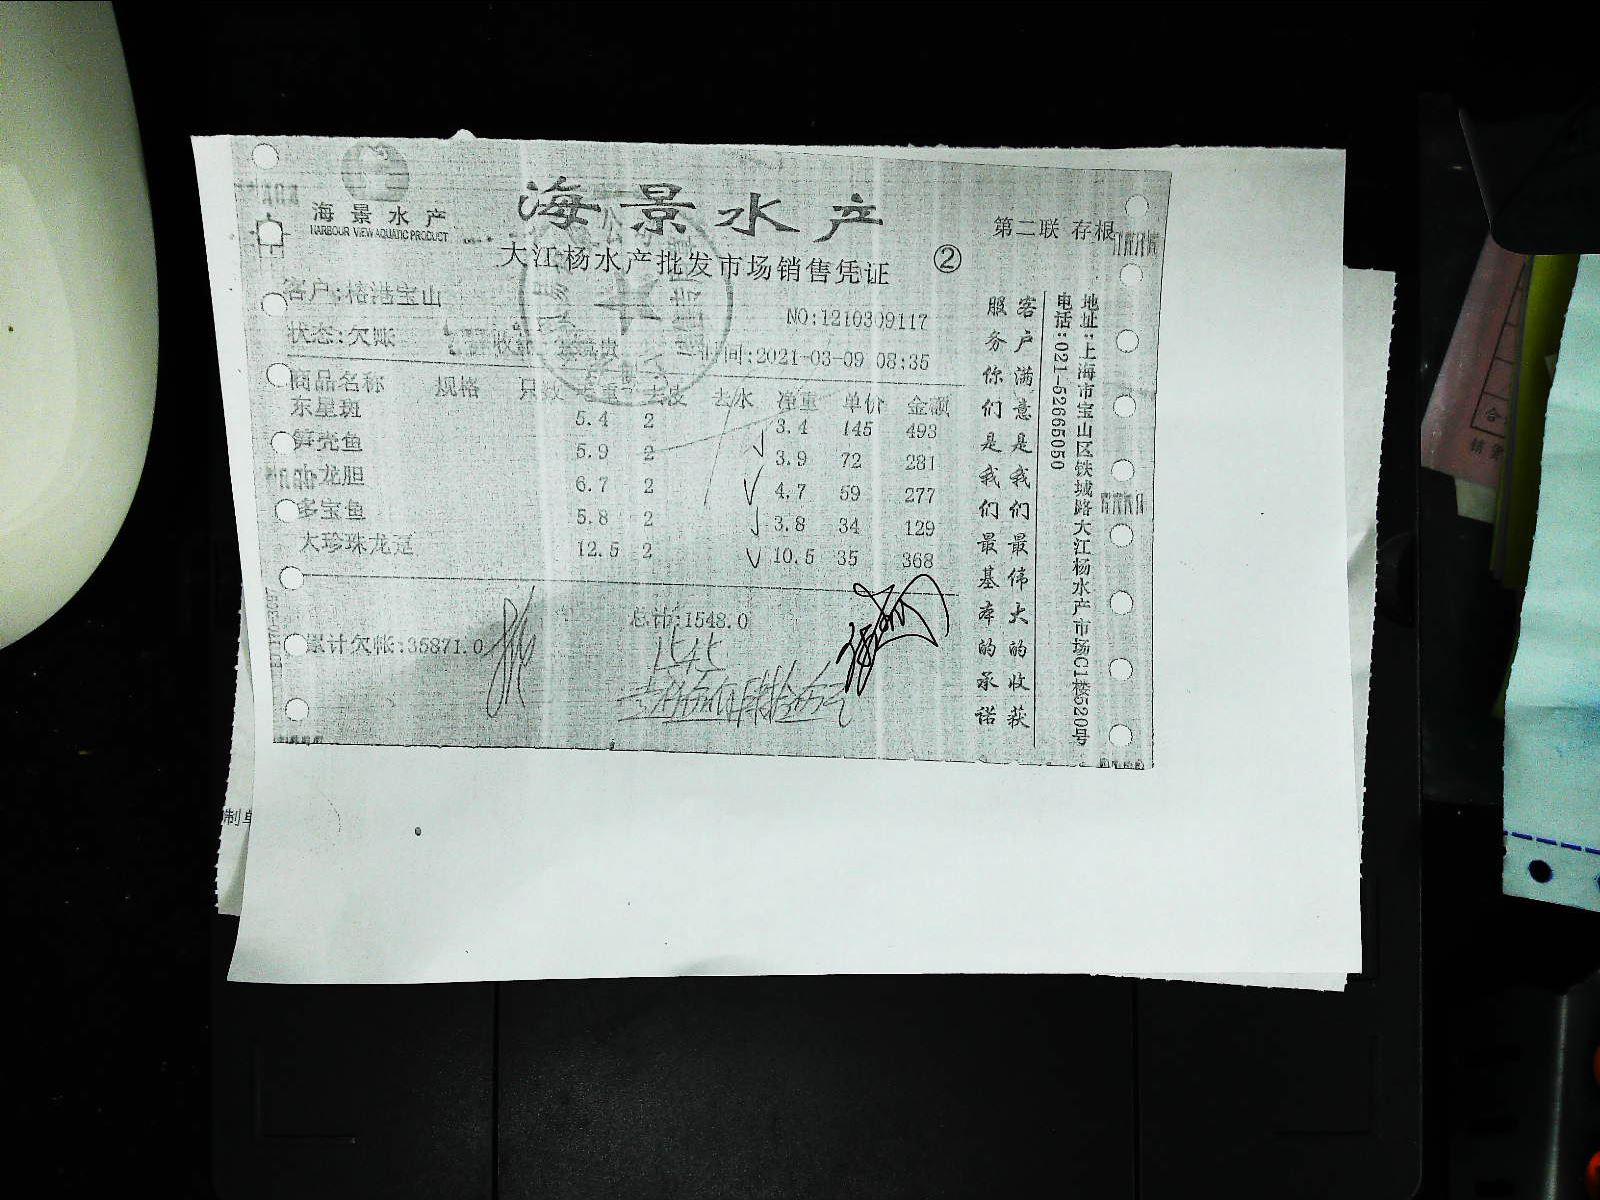 海景水产
HARBOUR VIEW AQUATIC PRODUCT
海景水产
第二联 存根
大江杨水产批发市场销售凭证 ②
客户:格浩宝山
NO:1210309117
状态:欠账
时间:2021-03-09 08:35
商品名称 规格 只数 毛重 去皮 去水 净重 单价 金额
东星斑 5.4 2 3.4 145 493
笋壳鱼 5.9 2 3.9 72 281
小龙胆 6.7 2 4.7 59 277
多宝鱼 5.8 2 3.8 34 129
大珍珠龙趸 12.5 2 10.5 35 368
总计:1548.0
累计欠帐:35871.0
1545
客户满意是我们最伟大的收获
服务你们是我们最基本的承诺
地址:上海市宝山区铁城路大江杨水产市场C1楼520号
电话:021-52665050
制单